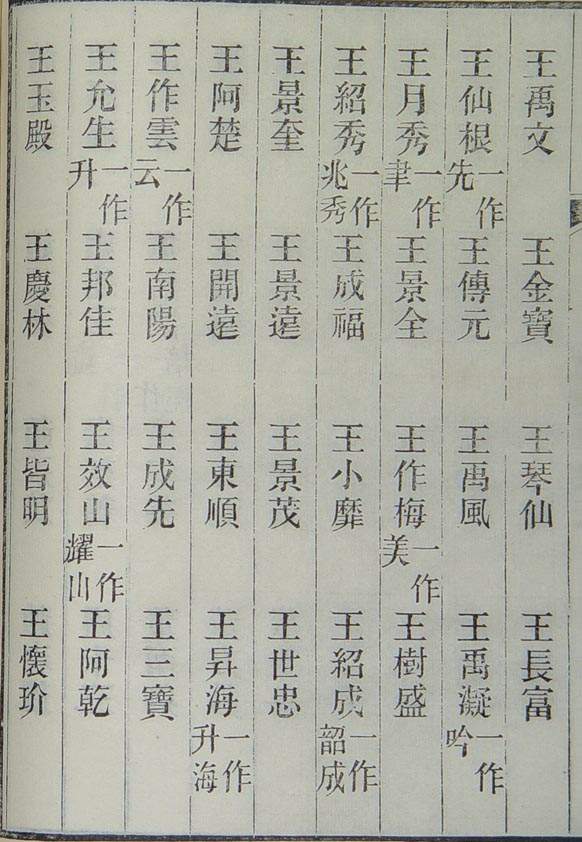 王禹文 王金寶 王琴仙 王長富
王仙根一作先 王傳元 王禹風 王禹凝一作吟
王月秀一作聿 王景全 王作梅一作美 王樹盛
王紹秀一作兆秀 王成福 王小靡 王紹成一作韶成
王景奎 王景遠 王景茂 王世忠
王阿楚 王開遠 王東順 王昇海一作升海
王作雲一作云 王南陽 王成先 王三寶
王允生一作升 王邦佳 王效山一作耀山 王阿乾
王玉殿 王慶林 王皆明 王懷玠